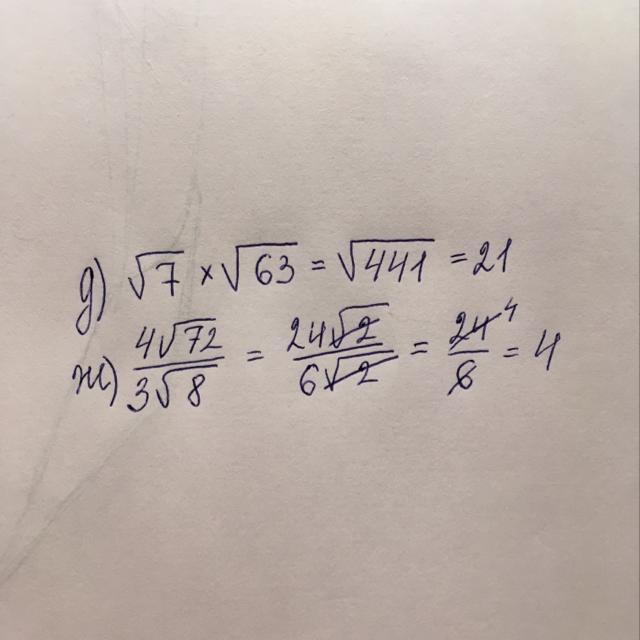 д) √7 × √63 = √441 = 21
ж) 4√72 / 3√8 = 24√2 / 6√2 = 24 4 / 6 = 4